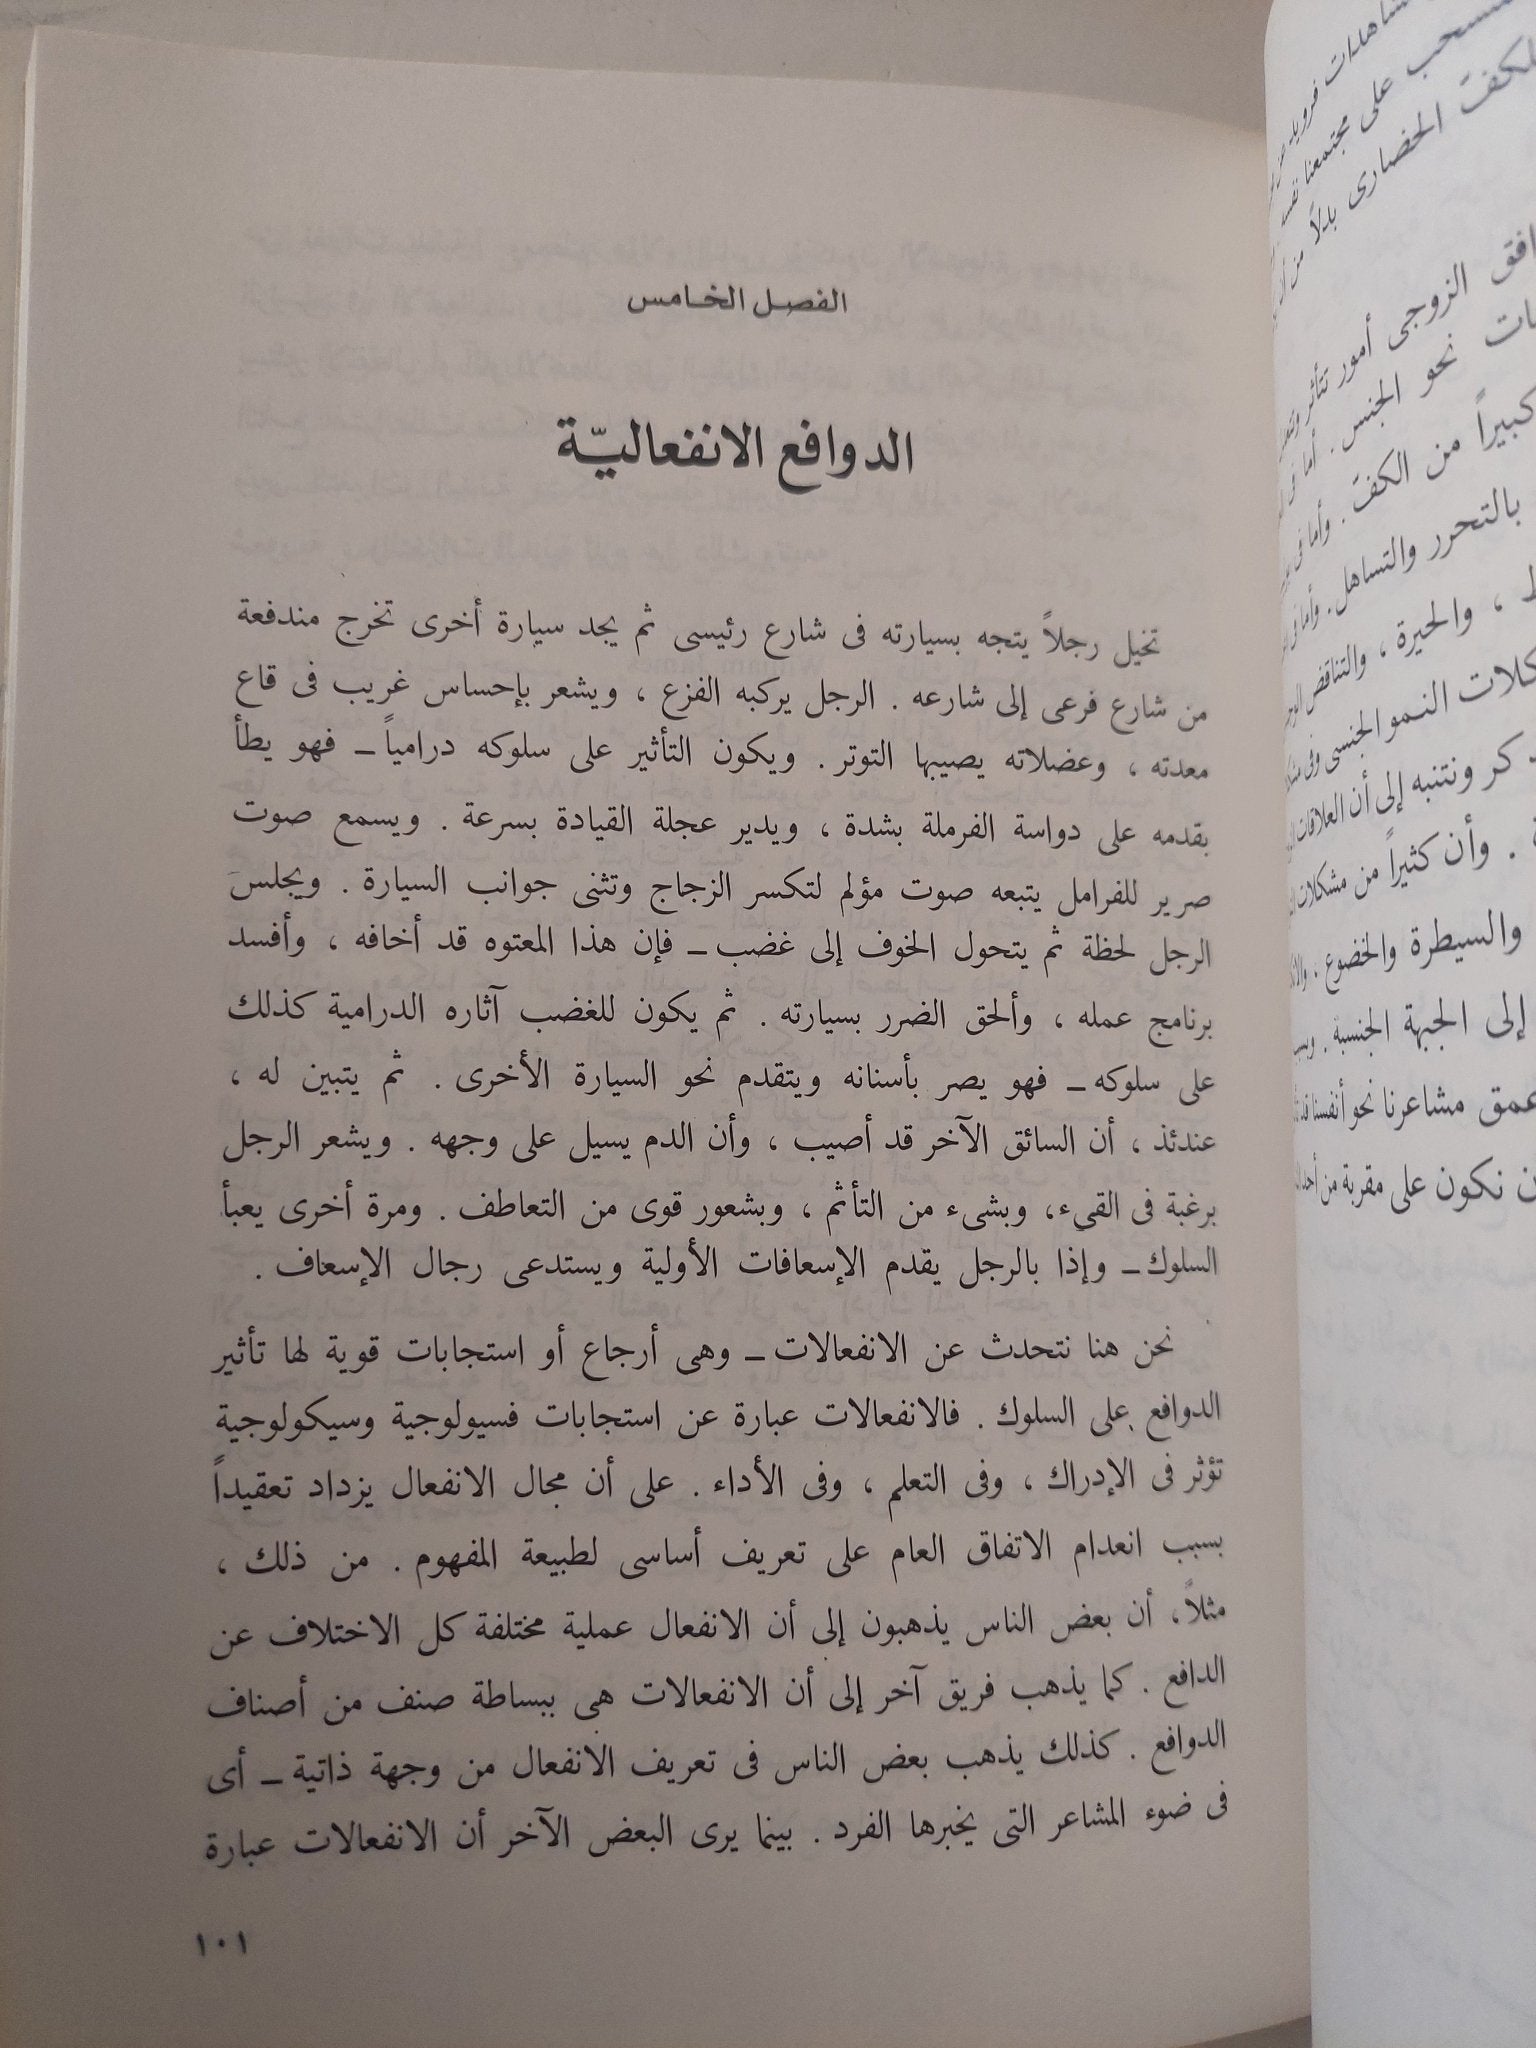 الفصل الخامس
الدوافع الانفعاليّة
تخيل رجلاً يتجه بسيارته فى شارع رئيسى ثم يجد سيارة أخرى تخرج مندفعة
من شارع فرعى إلى شارعه . الرجل يركبه الفزع ، ويشعر بإحساس غريب فى قاع
معدته ، وعضلاته يصيبها التوتر . ويكون التأثير على سلوكه درامياً ــ فهو يطأ
بقدمه على دواسة الفرملة بشدة ، ويدير عجلة القيادة بسرعة . ويسمع صوت
صرير للفرامل يتبعه صوت مؤلم لتكسر الزجاج وتثنى جوانب السيارة . ويجلسَ
الرجل لحظة ثم يتحول الخوف إلى غضب ــ فإن هذا المعتوه قد أخافه ، وأفسد
برنامج عمله ، وألحق الضرر بسيارته . ثم يكون للغضب آثاره الدرامية كذلك
على سلوكه ــ فهو يصر بأسنانه ويتقدم نحو السيارة الأخرى . ثم يتبين له ،
عندئذ ، أن السائق الآخر قد أصيب ، وأن الدم يسيل على وجهه . ويشعر الرجل
برغبة فى القىء، وبشىء من التأثم ، وبشعور قوى من التعاطف . ومرة أخرى يعبأ
السلوك ــ وإذا بالرجل يقدم الإسعافات الأولية ويستدعى رجال الإسعاف .
نحن هنا نتحدث عن الانفعالات ــ وهى أرجاع أو استجابات قوية لها تأثير
الدوافع على السلوك . فالانفعالات عبارة عن استجابات فسيولوجية وسيكولوجية
تؤثر فى الإدراك ، وفى التعلم ، وفى الأداء . على أن مجال الانفعال يزداد تعقيداً
بسبب انعدام الاتفاق العام على تعريف أساسى لطبيعة المفهوم . من ذلك ،
مثلاً، أن بعض الناس يذهبون إلى أن الانفعال عملية مختلفة كل الاختلاف عن
الدافع . كما يذهب فريق آخر إلى أن الانفعالات هى ببساطة صنف من أصناف
الدوافع . كذلك يذهب بعض الناس فى تعريف الانفعال من وجهة ذاتية ــ أى
فى ضوء المشاعر التى يخبرها الفرد . بينما يرى البعض الآخر أن الانفعالات عبارة
١٠١
على مجتمعنا
الحضارى بدلاً من أن
الزوجى أمور تتأثر
نحو الجنس . أما فى
كبيراً من الكفّ . وأما فى
بالتحرر والتساهل . وأما فى
، والحيرة ، والتناقض
النمو الجنسى وفى
ونتنبه إلى أن العلاقات
. وأن كثيراً من مشكلات
والسيطرة والخضوع .
إلى الجبهة الجنسية .
عمق مشاعرنا نحو أنفسنا قد
نكون على مقربة من أحد